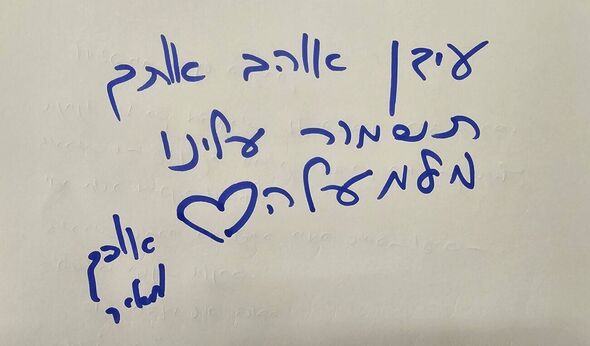 עידן אוהב אותך
תשמור עלינו
מלמעלה
מאיר